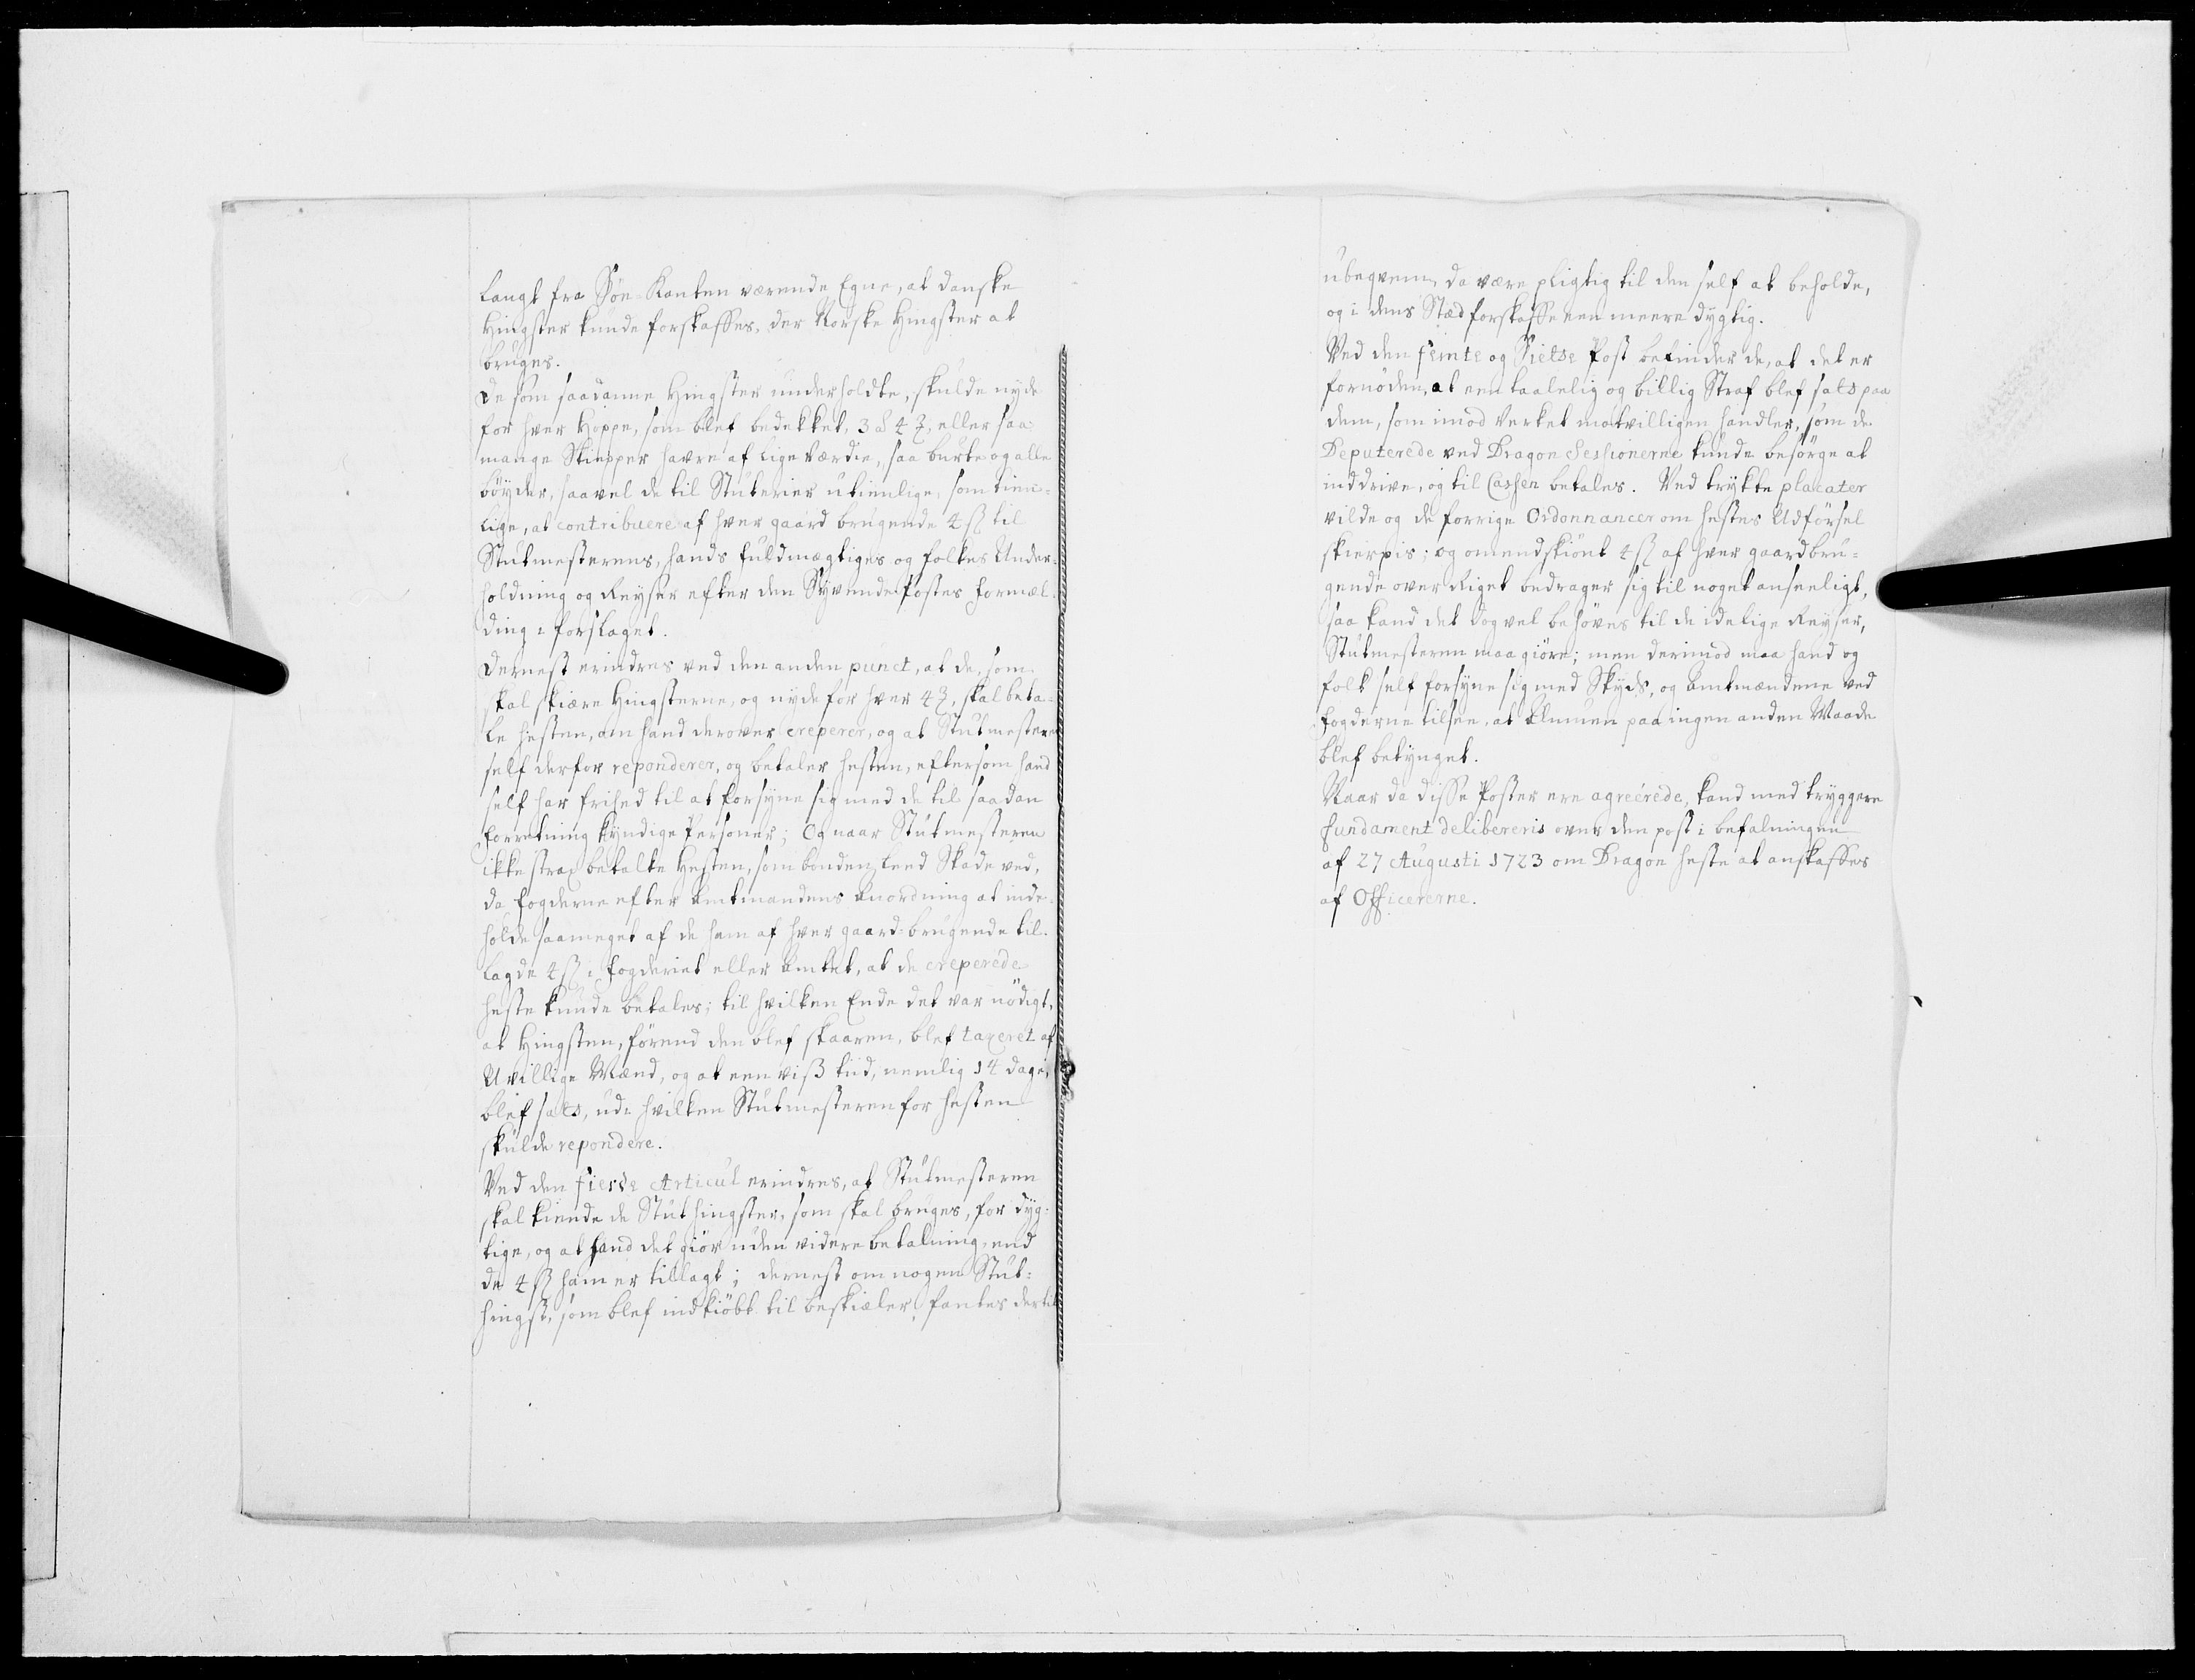 langt fra Söe-Kanten værende Egne, at danske
Hingster kunde forskaffes, der Norske Hingster at
bruges.
De som saadanne Hingster underholdte, skulde nyde
for hver Hoppe, som blef bedekket, 3 à 4 ȝ, eller saa
mange Skiepper havre af lige Værdie, saa burte og alle
böyder, saavel de til Stuterier utienlige, som tien-
lige, at contribuere af hver gaard brugende 4 ß til
Stutmesterens, hands fuldmægtiges og folkes Under-
holdning og Reyser efter den Syvende Postes formæl-
ding i forslaget.
Dernest erindres ved den anden punct, at de, som
skal skiære Hingsterne, og nyde for hver 4 ȝ, skal beta-
le hesten, om hand derover creperer, og at Stutmesteren
self derfor reponderer, og betaler hesten, eftersom hand
self har frihed til at forsyne sig med de til saadan
forretning kyndige Personer; Og naar Stutmesteren
ikke strax betalte Hesten, som bonden leed Skade ved,
da fogderne efter Amtmandens Anordning at inde-
holde saameget af de ham af hver gaard-brugende til-
lagde 4 ß i fogderiet eller Amtet, at de creperede
heste kunde betales; til hvilken Ende det var nödigt,
at Hingsten, förend den blef skaaren, blef taxeret af
Uvillige Mænd, og at een viß tiid, nemlig 14 dage,
blef sats, udi hvilken Stutmesteren for hesten
skulde repondere.
Ved den fierde Articul erindres, at Stutmesteren
skal kiende de Stuthingster, som skal bruges, for dyg-
tige, og at hand det giör uden videre betalning, end
de 4 ß ham er tillagt; dernest om nogen Stut-
hingst, som blef indkiöbt til beskiæler, fantes dertil
ubeqvem, da være pligtig til den self at beholde,
og i dens Stæd forskaffe een meere dygtig.
Ved den femte og Siette Post befinder de, at det er
fornöden, at een taalelig og billig Straf blef sats paa
dem, som imod Verket motvilligen handler, som de
Deputerede ved Dragon Sessionerne kunde besörge at
inddrive, og til Cassen betales. Ved trykte placater
vilde og de forrige Ordonnancer om hestes Udförsel
skierpis; og omendskiönt 4 ß af hver gaardbru-
gende over Riget bedrager sig til noget anseeligt,
saa kand det dog vel behöves til de idelige Reyser,
Stutmesteren maa giöre; men derimod maa hand og
folk self forsyne sig med Skyds, og Amtmændene ved
fogderne tilsee, at Almuen paa ingen anden Maade
blef betynget.
Naar da disse Poster ere agreerede, kand med tryggere
fundament delibereris over den post i befalningen
af 27 Augusti 1723 om Dragon heste at anskaffes
af Officererne.